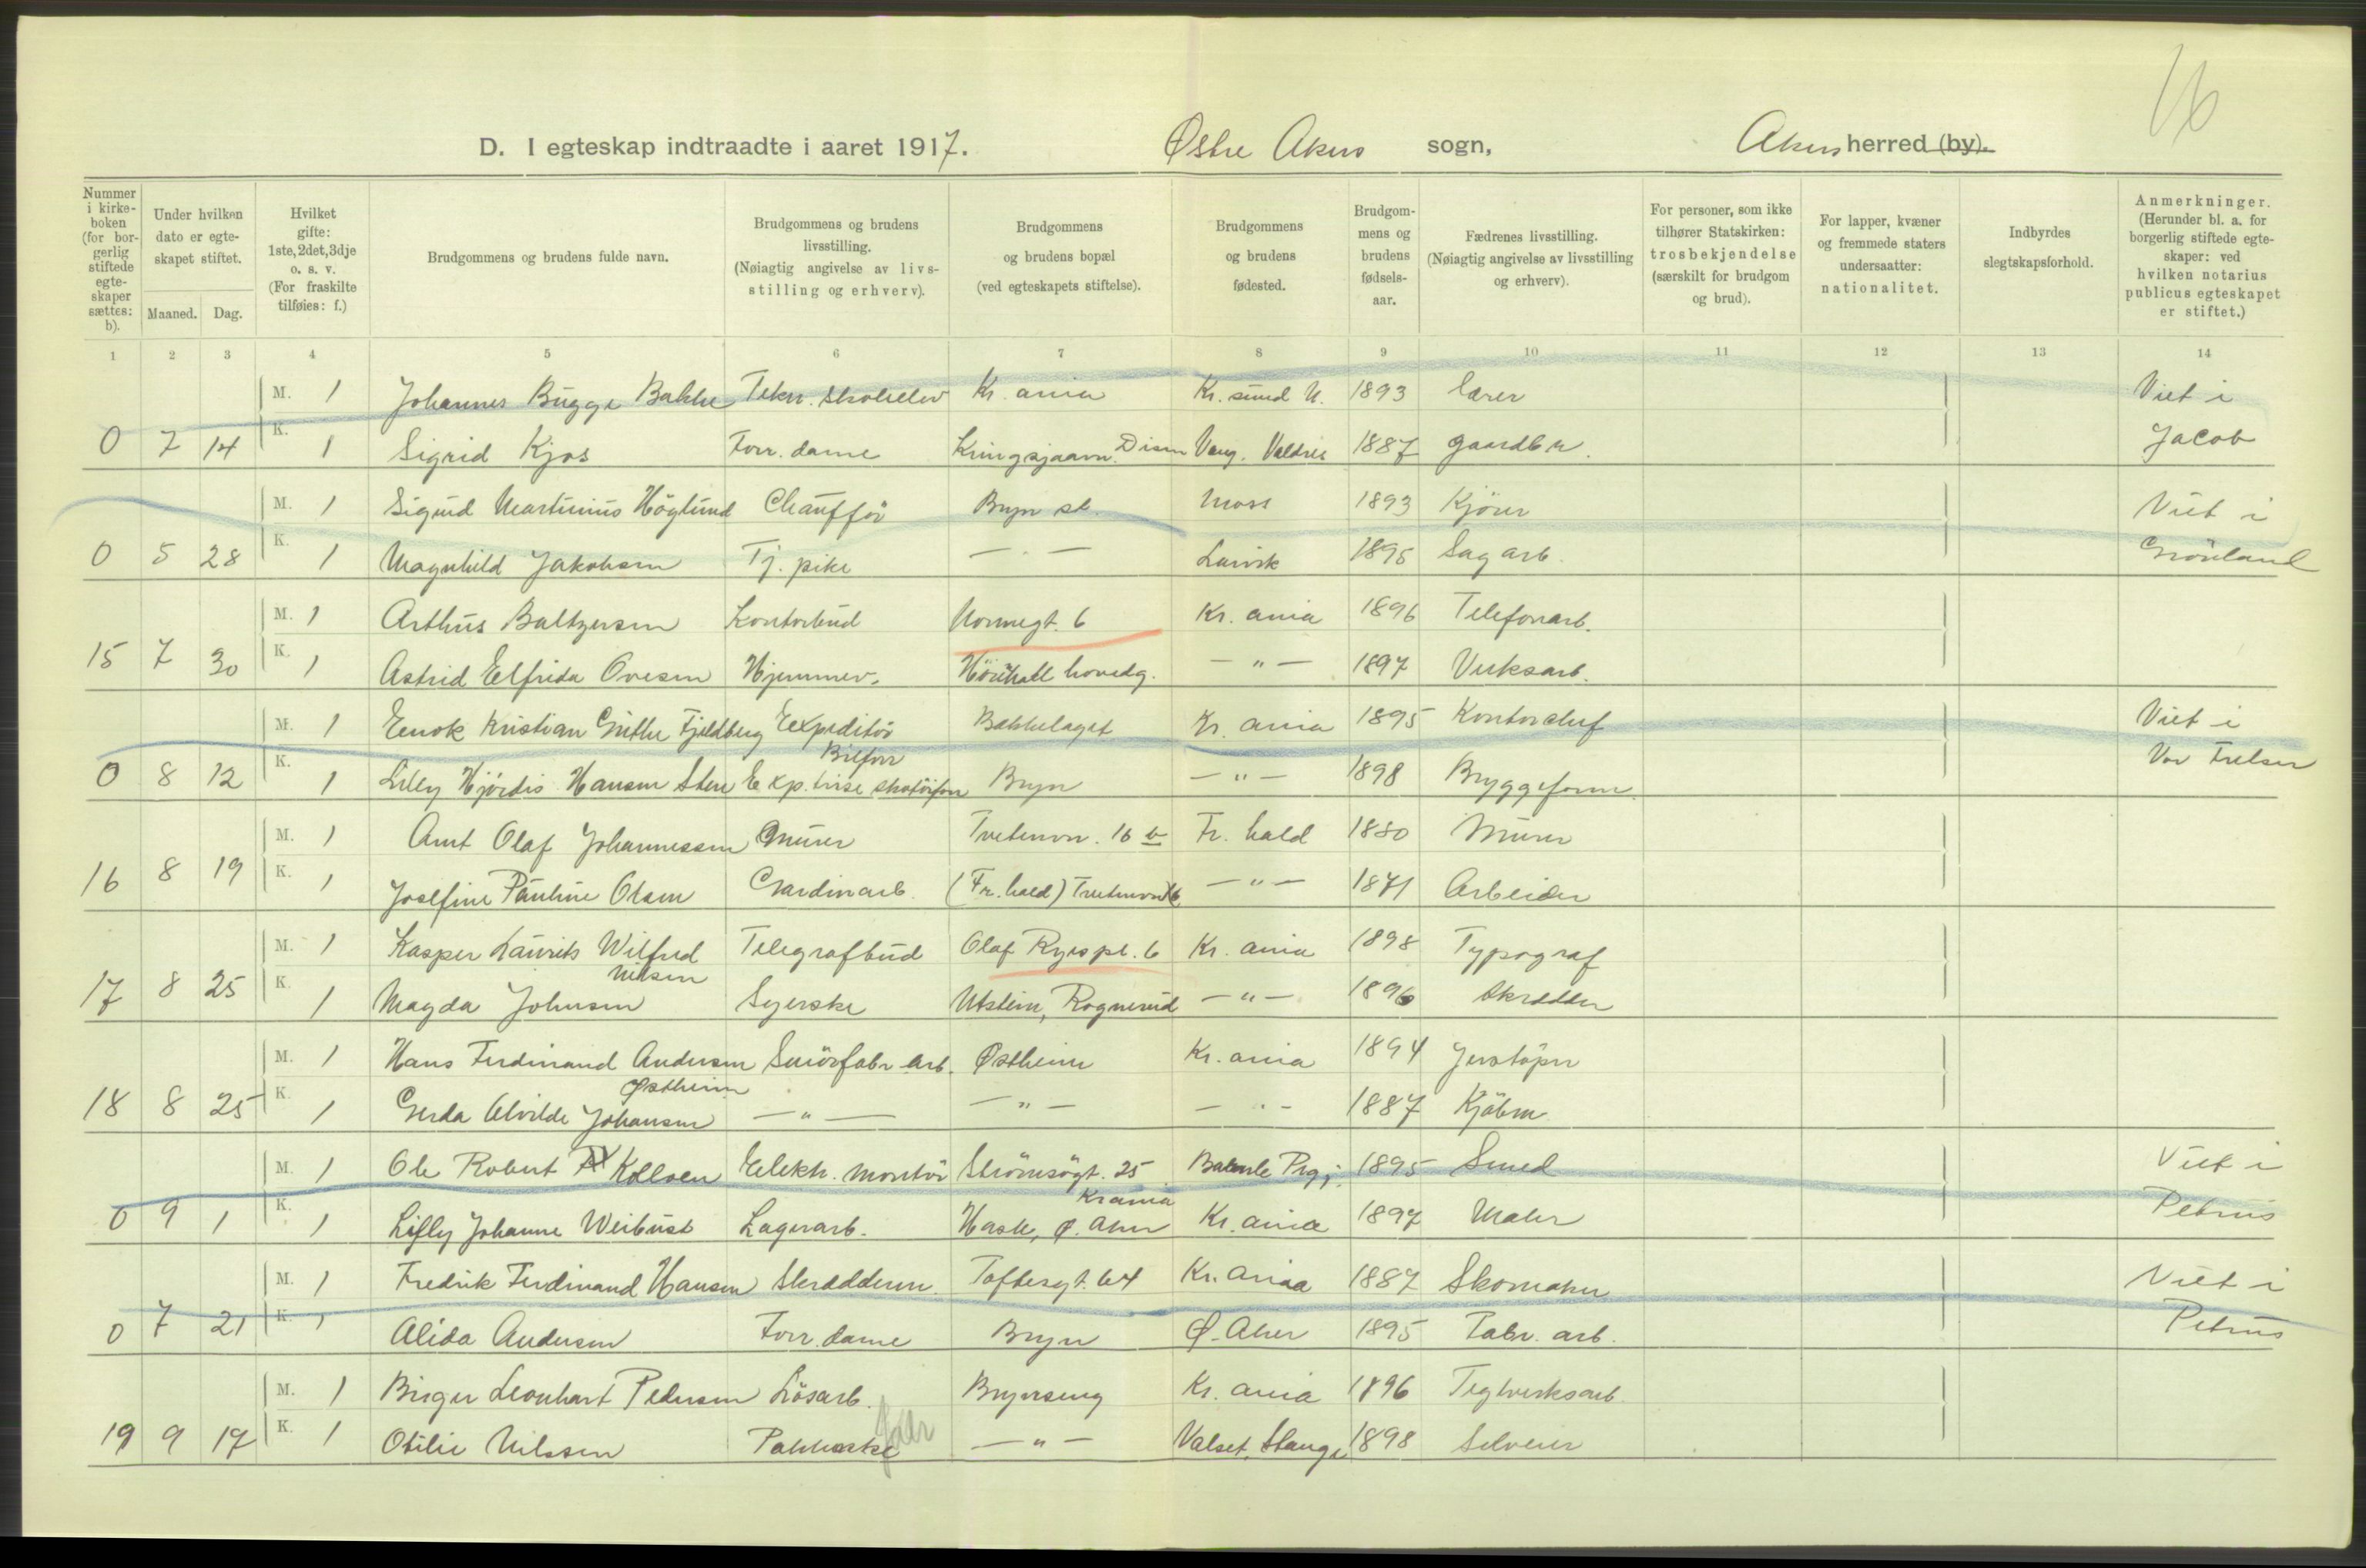 16
D. I egteskap indtraadte i aaret 1917. Østre Akers sogn, Akers herred (by).
Nummer i kirkeboken (for borgerlig stiftede egteskaper sættes: b).
Under hvilken dato er egteskapet stiftet.
Maaned. Dag.
Hvilket gifte: 1ste, 2det, 3dje o. s. v. (For fraskilte tilføies: f.)
Brudgommens og brudens fulde navn.
Brudgommens og brudens livsstilling. (Nøiagtig angivelse av livsstilling og erhverv).
Brudgommens og brudens bopæl (ved egteskapets stiftelse).
Brudgommens og brudens fødested.
Brudgommens og brudens fødselsaar.
Fædrenes livsstilling. (Nøiagtig angivelse av livsstilling og erhverv).
For personer, som ikke tilhører Statskirken: trosbekjendelse (særskilt for brudgom og brud).
For lapper, kvæner og fremmede staters undersaatter: nationalitet.
Indbyrdes slegtskapsforhold.
Anmerkninger. (Herunder bl. a. for borgerlig stiftede egteskaper: ved hvilken notarius publicus egteskapet er stiftet.)
1 2 3 4 5 6 7 8 9 10 11 12 13 14
M. 1 Johannes Bugge Bakke Tekn. skoleelev Kr. ania Kr. sund N. 1893 Lærer Viet i
0 7 14 K. 1 Sigrid Kjos Forr. dame Kringsjaavn. Disen Vang. Valdres 1887 gaardbr. Jacob
M. 1 Sigurd Martinius Höglund Chauffør Bryn st. Moss 1893 Kjörer Viet i
0 5 28 K. 1 Magnhild Jakobsen Tj. pike — . — Larvik 1895 Sagarb. Grönland
M. 1 Arthur Baltzersen Kontorbud Normegt. 6 Kr. ania 1896 Telefonarb.
15 7 30 K. 1 Astrid Elfrida Ovesen Hjemmev. hovedg. — " — 1897 Verksarb.
M. 1 Enok Kristian Grithe Fjeldberg Expeditör Bækkelaget Kr. ania 1895 Kontorchef Viet i
Bilforr
0 8 12 K. 1 Lilly Hjördis Hansen Stere Exp. trise Bryn — " — 1898 Bryggeform. Vor Frelser
M. 1 Arnt Olaf Johannessen Murer Tvetenvn. 16 b Fr. hald 1880 Murer
16 8 19 K. 1 Josefine Pauline Olsen Gardinarb. (Fr. hald) Tvetenvn 16 — " — 1871 Arbeider
M. 1 Kasper Laurits Wilfred Telegrafbud Olaf Ryes pl. 6 Kr. ania 1898 Typograf
Nilsen
17 8 25 K. 1 Magda Johnsen Syerske Utstein, Rognerud — " — 1896 Skrædder
M. 1 Hans Ferdinand Andersen Smörfabr. arb. Østheim Kr. ania 1894 Jernstöper
Østheim
18 8 25 K. 1 Gerda Alvilde Johansen — " — — " — — " — 1887 Kjöbm.
M. 1 Ole Robert Kolloen Elektr. montör Strömsögt. 25 Bamle Prgj. 1895 Smed Viet i
Kr ania
0 9 1 K. 1 Lilly Johanne Weibust Lagerarb. Hasle, Ø. Aker Kr. ania 1897 Maler Petrus
M. 1 Fredrik Ferdinand Hansen Skræddersv. Toftesgt. 64 Kr. ania 1887 Skomaker Viet i
0 7 21 K. 1 Alida Andersen Forr. dame Bryn Ø. Aker 1895 Fabr. arb. Petrus
M. 1 Birger Leonhart Pedersen Lösarb. Brynseng Kr. ania 1896 Teglverksarb.
19 9 17 K. 1 Otilie Nilssen Pakkerske — " — Valset, Stange 1898 Selveier